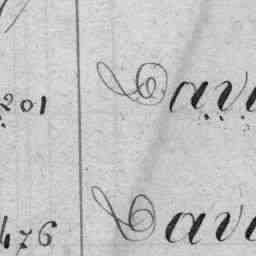 201 Davi
476 Davi